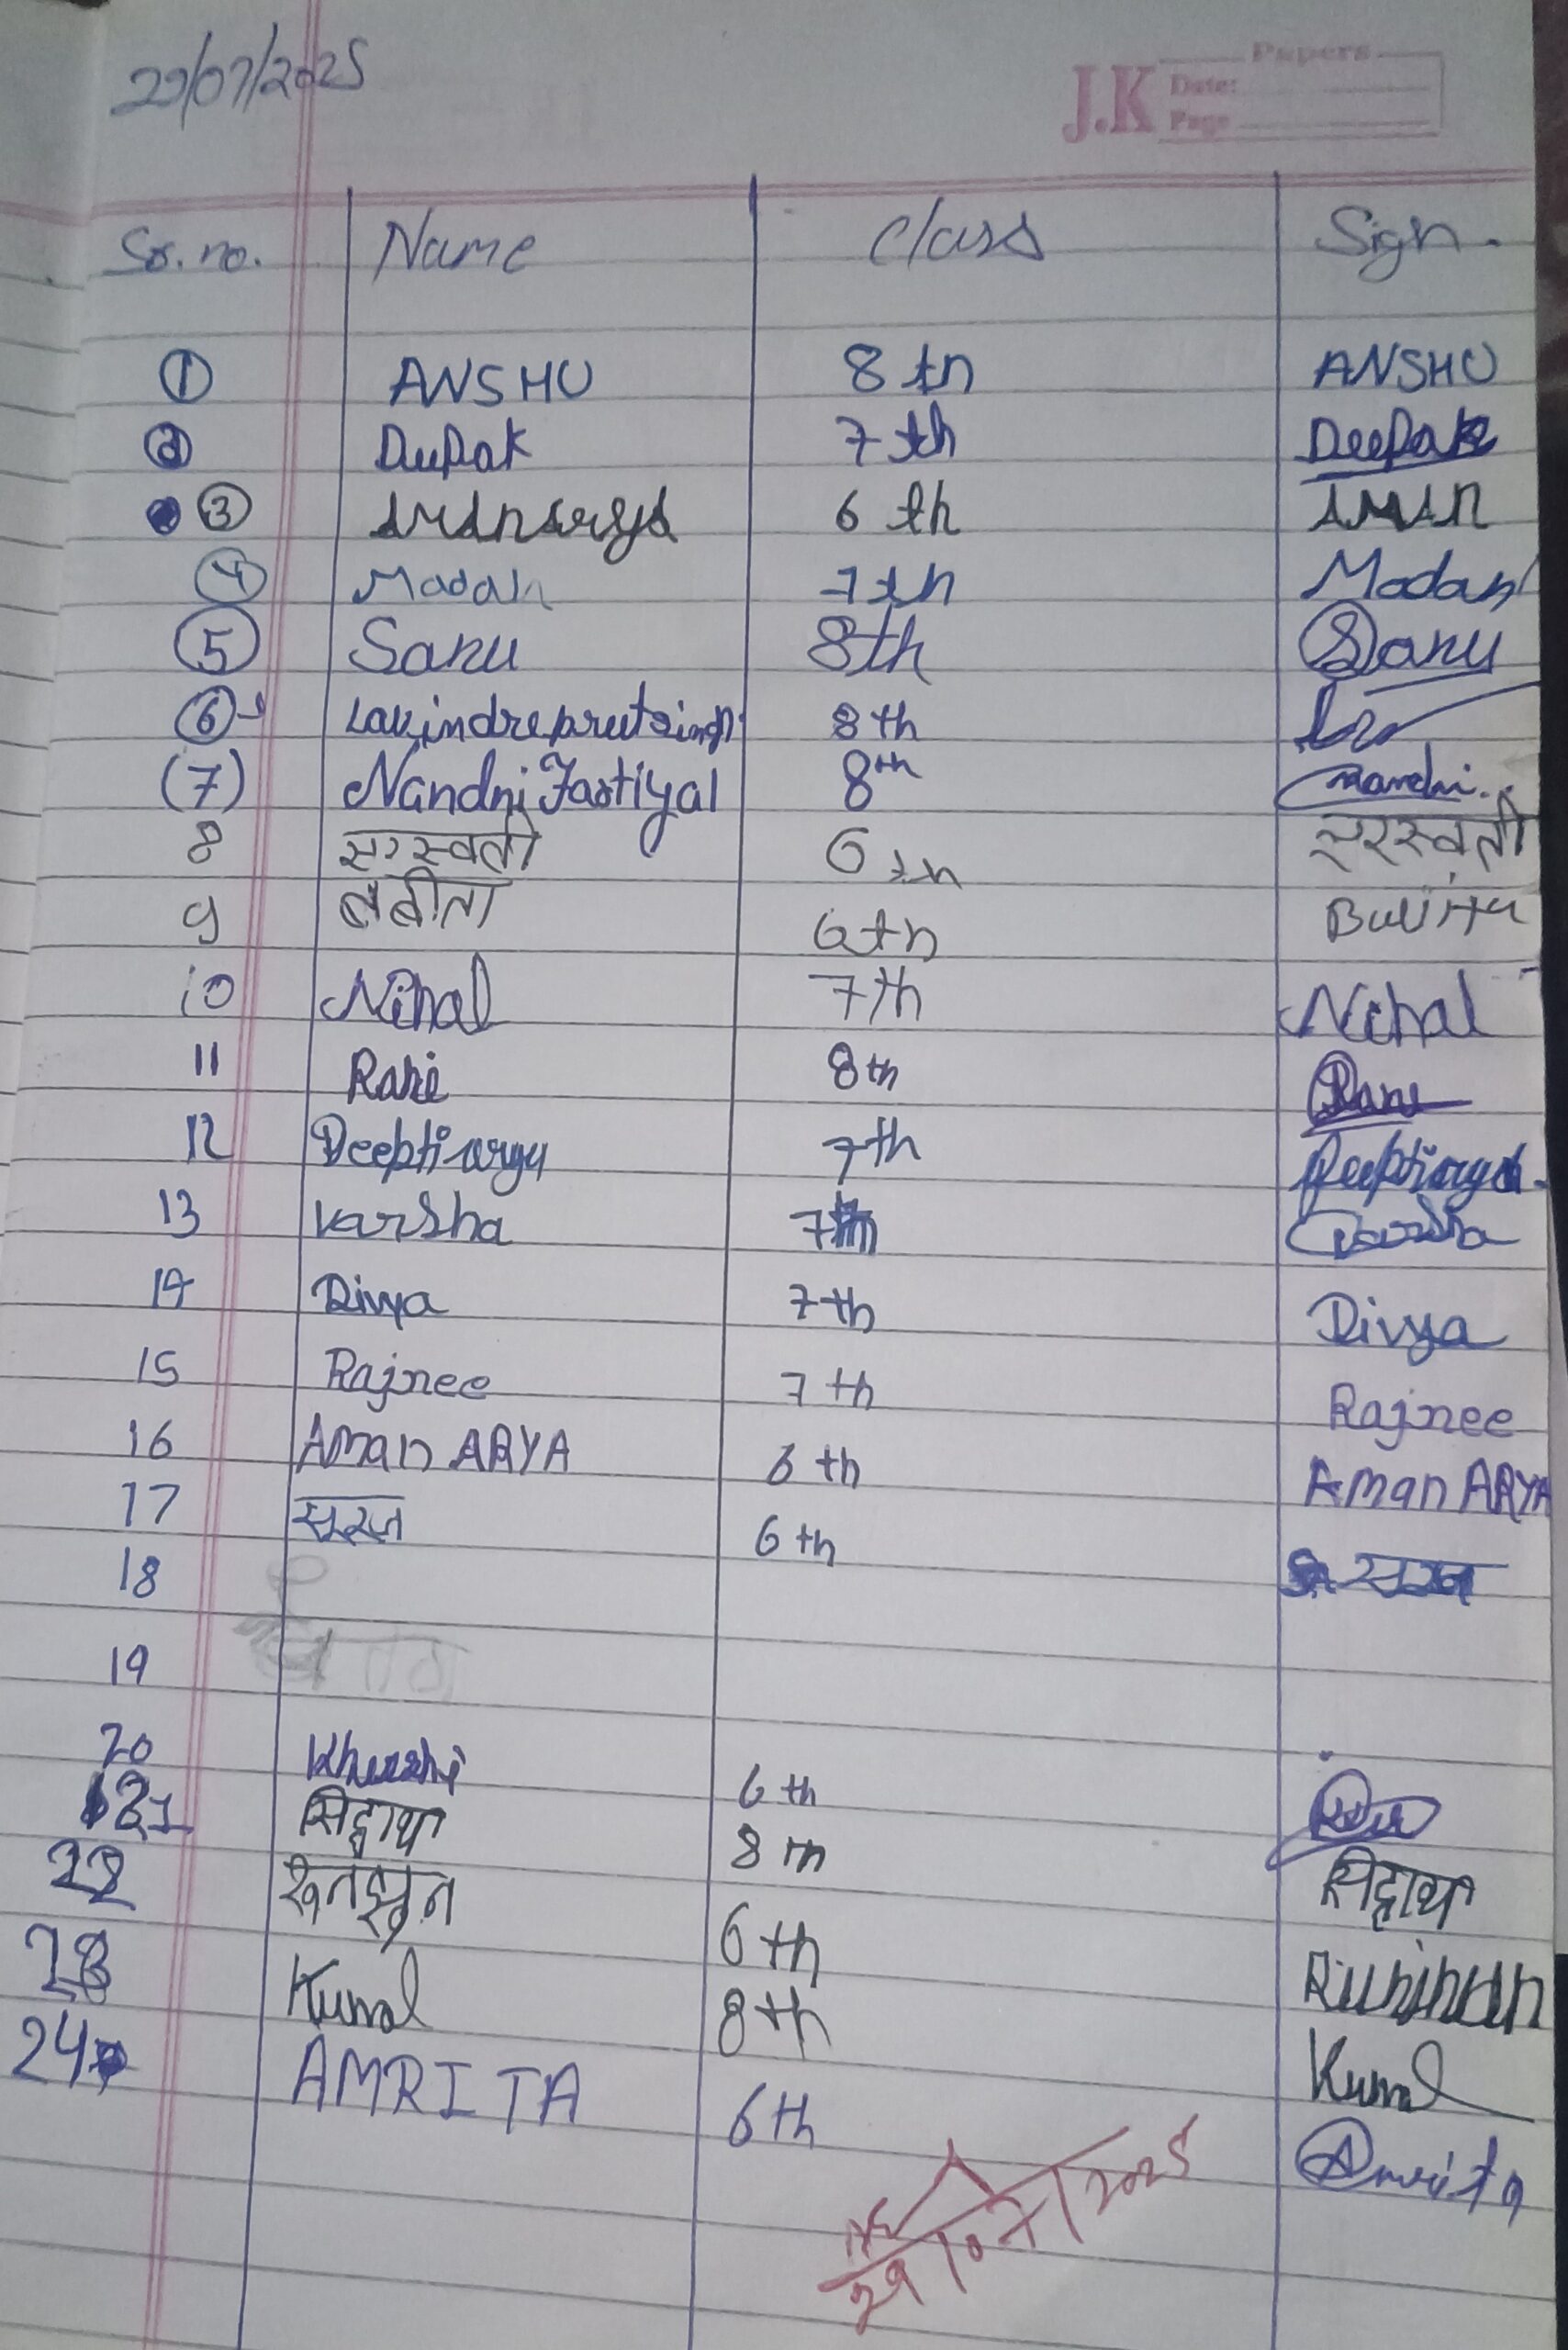 29/07/2025
J.K Papers
Date:
Page
Sr. no. Name Class Sign.
1 ANSHU 8th ANSHU
2 Deepak 7th Deepak
3 Aman arya 6th AMAN
4 Madan 7th Madan
5 Sanu 8th Sanu
6 Lavindrepreetsingh 8th
(7) Nandni Fartiyal 8th Nandni..
8 सरस्वती 6th सरस्वती
9 बबीता 6th
10 Nihal 7th Nihal
11 Rani 8th Rani
12 Deepti arya 7th Deepti arya.
13 Varsha 7th Varsha
14 Divya 7th Divya
15 Rajnee 7th Rajnee
16 Aman ARYA 6th Aman ARYA
17 सूरज 6th सूरज
18
19
20 Khushi 6th
21 सिद्धाथ 8th सिद्धाथ
22 रूनझुन 6th Runjhun
23 Kunal 8th Kunal
24 AMRITA 6th Amrita
29/07/2025